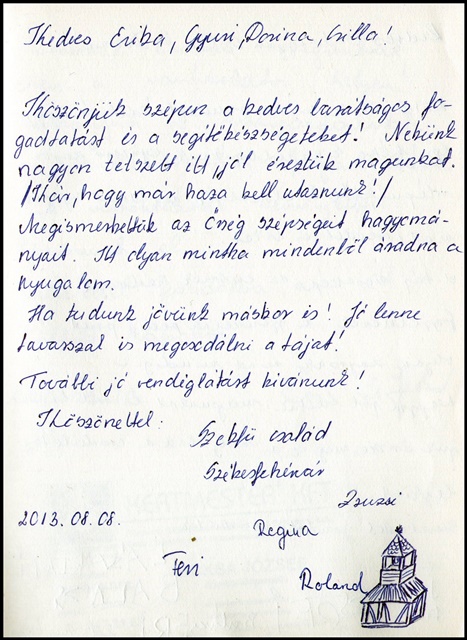 Kedves Csiba, Gyuri, Dorina, Csilla!
Köszönjük szépen a kedves barátságos fo-
gadtatást és a segítőkészségeteket! Nekünk
nagyon tetszett itt, jól éreztük magunkat.
/Kár, hogy már haza kell utaznunk!/
Megismerhettük az Őrség szépségeit, hagyomá-
nyait. Itt olyan mintha mindenből áradna a
nyugalom.
Ha tudunk jövünk máskor is! Jó lenne
tavasszal is megcsodálni a tájat!
További jó vendéglátást kívánunk!
Köszönettel:
család
Székesfehérvár
Zsuzsi
2013.08.08.
Regina
Feri
Roland